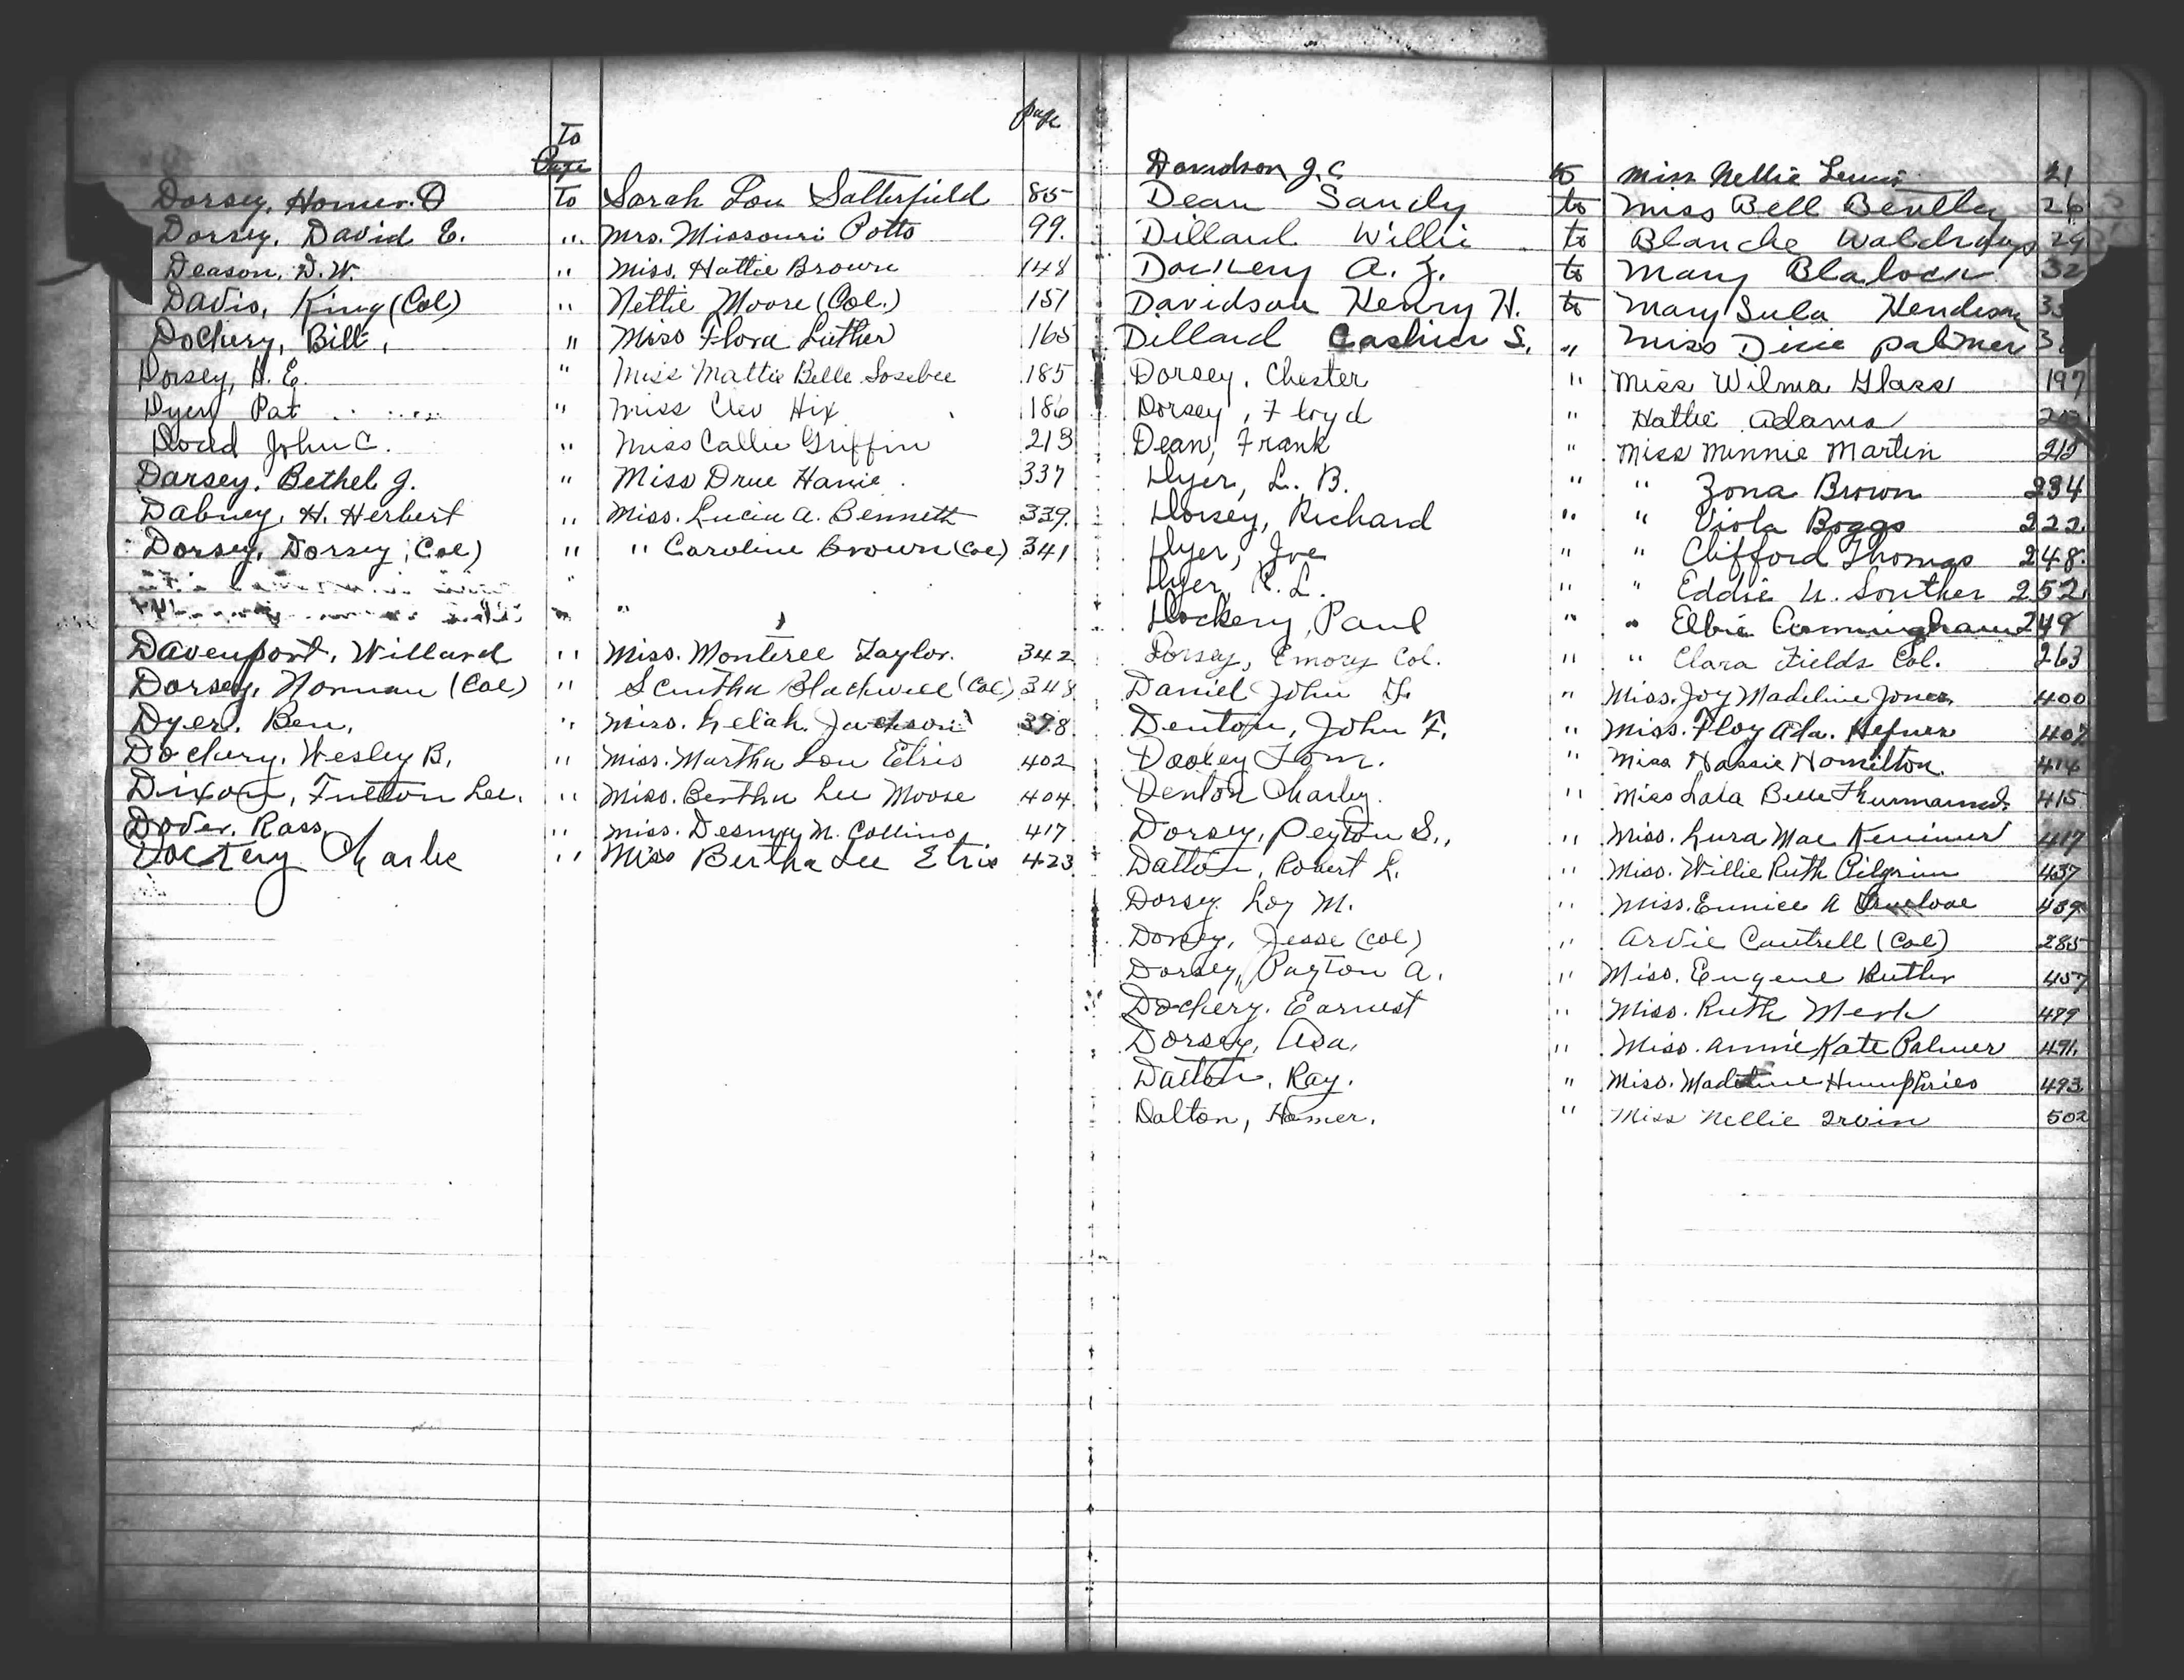 To
page
Page
Dorsey, Homer. O To Sarah Lou Satterfield 85
Dorsey, David E. " Mrs. Missouri Potts 99.
Deason, D. W. " Miss. Hattie Brown 148
Davis, King (Col) " Nettie Moore (Col.) 151
Dockery, Bill, " Miss Flora Luther 165
Dorsey, H. E. " Miss Mattie Belle Sosebee 185
Dyer, Pat " Miss Cleo Hix 186
Dodd John C. " Miss Callie Griffin 213
Darsey, Bethel J. " Miss Drue Hanie. 337
Dabney, H. Herbert " Miss. Lucia A. Bennett 339.
Dorsey, Dorsey, (Col) " " Caroline Brown (Col) 341
" "
Davenport, Willard " Miss. Monteree Taylor. 342
Dorsey, Norman (Col) " Blackwell (Col) 348
Dyer, Ben, " Miss. Lelah. Jackson 398
Dockery, Wesley B. " Miss. Martha Lou Etris 402
Dixon, Fulton Lee. " Miss. Bertha Lee Moose 404
Dover. Ross, " Miss. N. Collins, 417
Dockery Charlie " Miss Bertha Lee Etris 423
Davidson J. C to Miss Nellie Lewis 21
Dean Sandy to Miss Bell Bentley 26
Dillard Willie to Blanche Waldroups 29
Dockery A. J. to Mary Blalock 32
Davidson Henry H. to Mary Sula Henderson
Dillard Cashier S. " Miss Dixie Palmer
Dorsey, Chester " Miss Wilma Glass 197
Dorsey, Floyd " Hattie Adams
Dean, Frank " Miss Minnie Martin 212
Dyer, L. B. " " Zona Brown 234
Dorsey, Richard " " Viola Boggs 222
Dyer, Joe " " Clifford Thomas 248.
Dyer, R. L. " " Eddie U. Souther 252
Dockery, Paul " " Elbie Cunningham 249
Dorsey, Emory Col. " " Clara Fields Col. 263
Daniel John H. " Miss. Joy Madeline Jones 400
Denton, John F. " Miss. Floy Ada. Hefner 407
Dooley Tom. " Miss Hassie Hamilton. 414
Denton Charley. " Miss Lala Belle Thurmond. 415
Dorsey, Peyton S., " Miss. Lura Mae Kenimer 417
Dalton, Robert L. " Miss. Willie Ruth Pilgrim 437
Dorsey Loy M. " Miss. Eunice A Truelove 439
Dorsey, Jesse (Col) " Arvie Cantrell (Col) 285
Dorsey, Payton A. " Miss. Eugene Butler 457
Dockery. Earnest " Miss. Ruth Merk 489
Dorsey, Asa, " Miss. Annie Kate Palmer 491.
Dalton, Ray. " Miss. Madeline Humphries 493
Dalton, Homer. " Miss Nellie Irvin 502